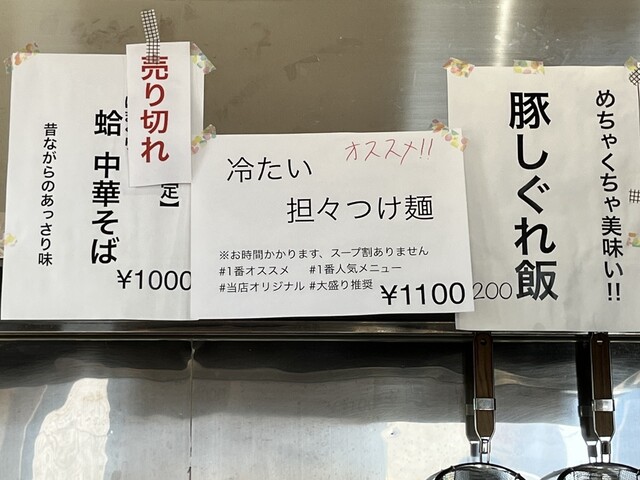 売り切れ
定】
蛤 中華そば
昔ながらのあっさり味
¥1000
オススメ!!
冷たい
担々つけ麺
※お時間かかります、スープ割ありません
#1番オススメ #1番人気メニュー
#当店オリジナル #大盛り推奨
¥1100
めちゃくちゃ美味い!!
豚しぐれ飯
200